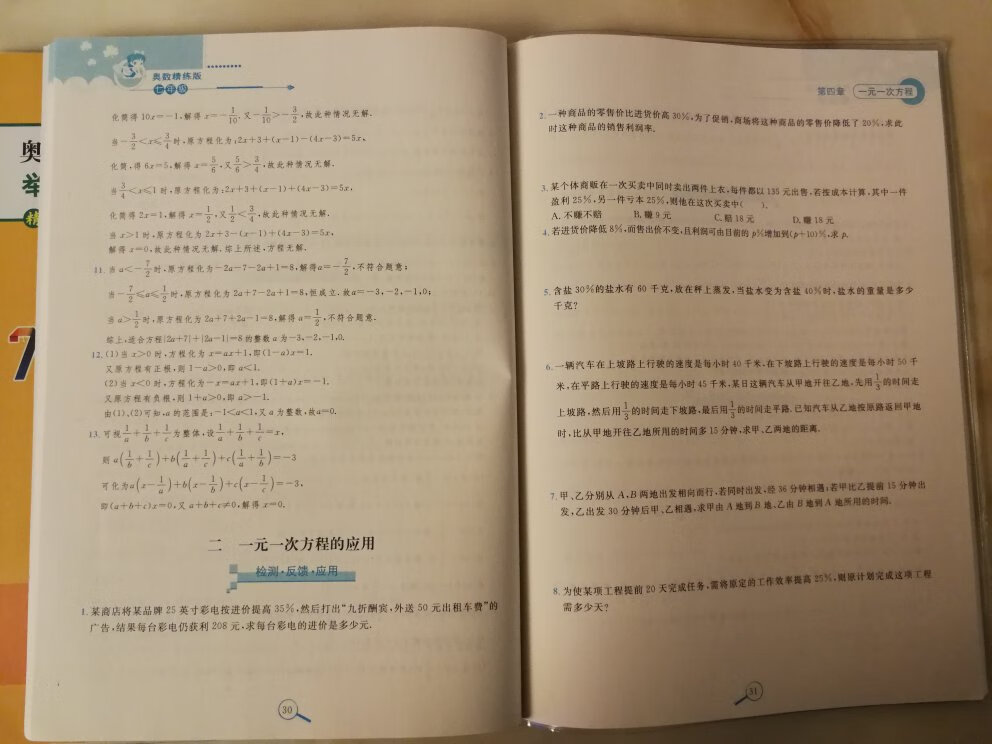 奥
举
精
7
奥数精练版
七年级
化简得 10x=-1,解得 x=-1/10.又-1/10>-3/2,故此种情况无解.
当-3/2<x≤3/4时,原方程化为:2x+3+(x-1)-(4x-3)=5x,
化简,得 6x=5,解得 x=5/6,又5/6>3/4,故此种情况无解.
当3/4<x≤1 时,原方程化为:2x+3+(x-1)+(4x-3)=5x,
化简得 2x=1,解得 x=1/2,又1/2<3/4,故此种情况无解.
当 x>1 时,原方程化为 2x+3-(x-1)+(4x-3)=5x,
解得 x=0,故此种情况无解.综上所述,方程无解.
11.当 a<-7/2时,原方程化为-2a-7-2a+1=8,解得a=-7/2,不符合题意;
当-7/2≤a≤1/2时,原方程化为 2a+7-2a+1=8,恒成立.故a=-3,-2,-1,0;
当 a>1/2时,原方程化为 2a+7+2a-1=8,解得 a=1/2,不符合题意.
综上,适合方程|2a+7|+|2a-1|=8的整数 a 为-3,-2,-1,0.
12.(1)当 x>0 时,方程化为 x=ax+1,即(1-a)x=1.
又原方程有正根,则 1-a>0,即 a<1.
(2)当 x<0 时,方程化为-x=ax+1,即(1+a)x=-1.
又原方程有负根,则 1+a>0,即 a>-1.
由(1)、(2)可知,a 的范围是:-1<a<1,又 a 为整数,故a=0.
13.可视1/a+1/b+1/c为整体,设1/a+1/b+1/c=x,
则 a(1/b+1/c)+b(1/a+1/c)+c(1/a+1/b)=-3
可化为a(x-1/a)+b(x-1/b)+c(x-1/c)=-3,
即(a+b+c)x=0,又 a+b+c≠0,解得 x=0.
二 一元一次方程的应用
检测·反馈·应用
1.某商店将某品牌 25 英寸彩电按进价提高 35%,然后打出“九折酬宾,外送 50 元出租车费”的
广告,结果每台彩电仍获利 208 元,求每台彩电的进价是多少元.
30
第四章 一元一次方程
2.一种商品的零售价比进货价高 30%,为了促销,商场将这种商品的零售价降低了 20%,求此
时这种商品的销售利润率.
3.某个体商贩在一次买卖中同时卖出两件上衣,每件都以 135 元出售.若按成本计算,其中一件
盈利 25%,另一件亏本 25%,则他在这次买卖中( ).
A.不赚不赔 B.赚 9 元 C.赔 18 元 D.赚 18 元
4.若进货价降低 8%,而售出价不变,且利润可由目前的 p%增加到(p+10)%,求 p.
5.含盐 30%的盐水有 60 千克,放在秤上蒸发,当盐水变为含盐 40%时,盐水的重量是多少
千克?
6.一辆汽车在上坡路上行驶的速度是每小时 40 千米,在下坡路上行驶的速度是每小时 50 千
米,在平路上行驶的速度是每小时 45 千米,某日这辆汽车从甲地开往乙地,先用1/3的时间走
上坡路,然后用1/3的时间走下坡路,最后用1/3的时间走平路.已知汽车从乙地按原路返回甲地
时,比从甲地开往乙地所用的时间多 15 分钟,求甲、乙两地的距离.
7.甲、乙分别从 A,B 两地出发相向而行,若同时出发,经 36 分钟相遇;若甲比乙提前 15 分钟出
发,乙出发 30 分钟后甲、乙相遇,求甲由 A 地到 B 地、乙由 B 地到 A 地所用的时间.
8.为使某项工程提前 20 天完成任务,需将原定的工作效率提高 25%,则原计划完成这项工程
需多少天?
31